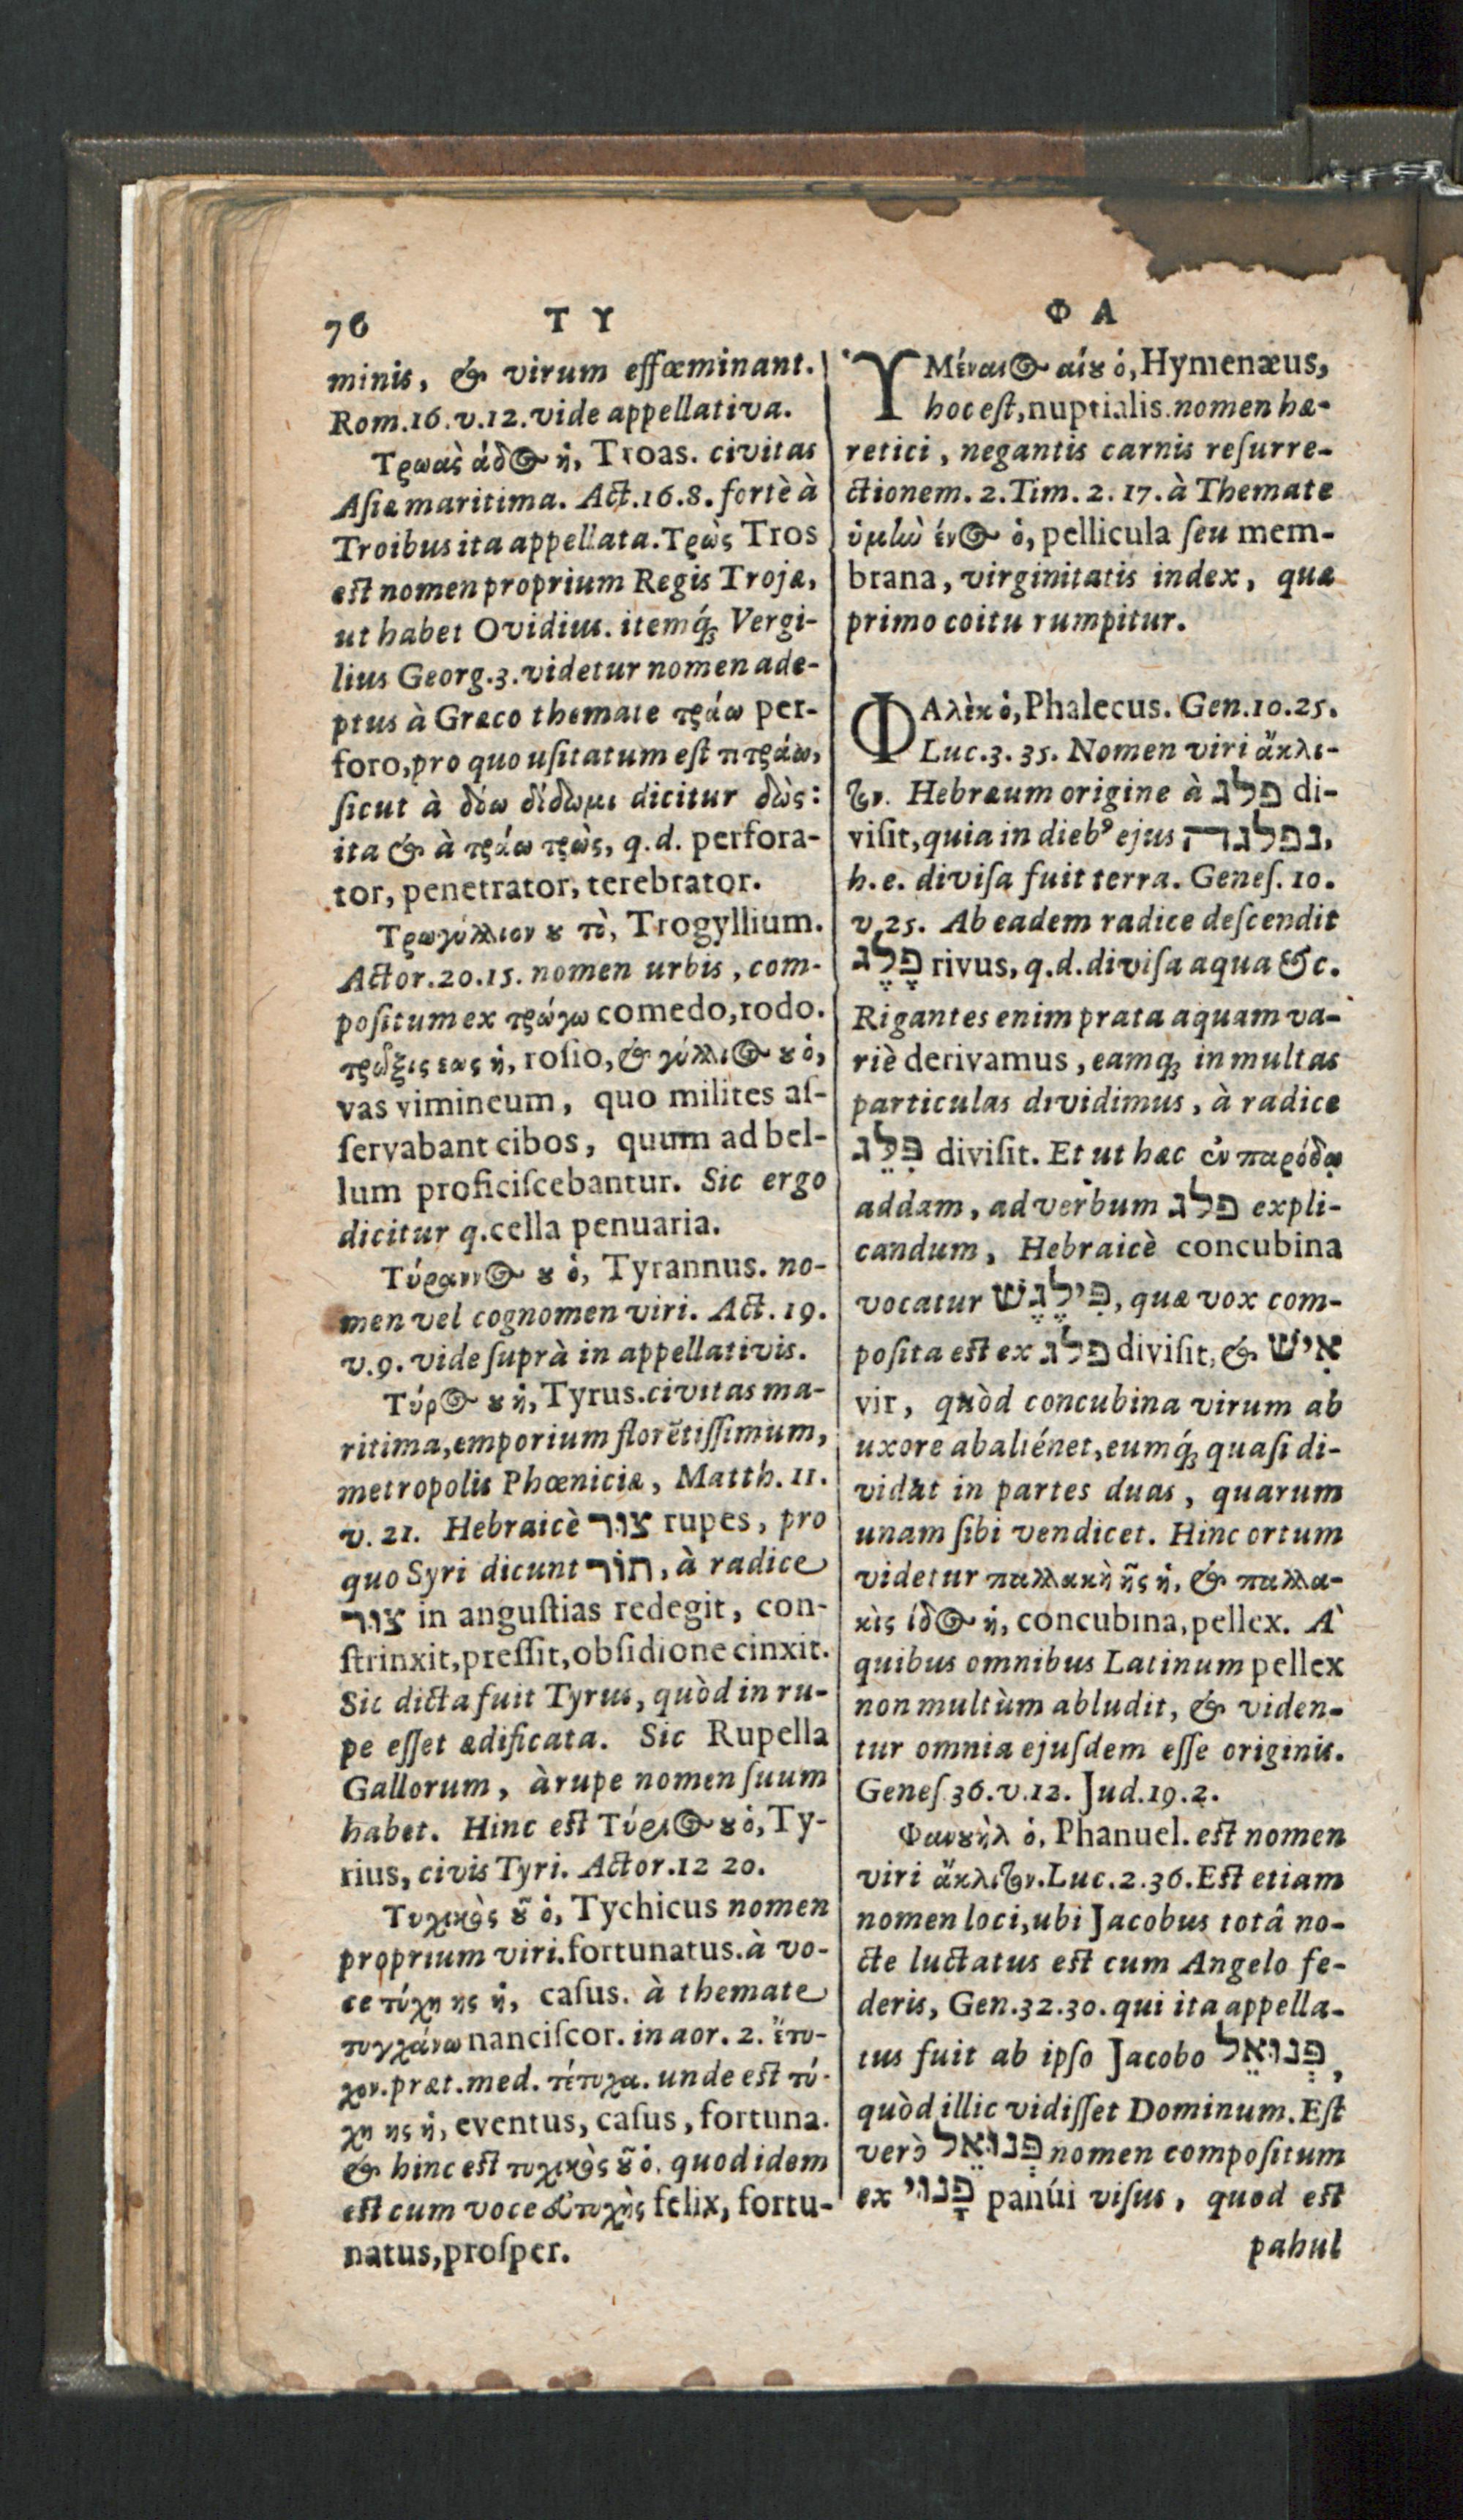 76
Τ Υ
minis, & virum effœminant.
Rom.16.v.12.vide appellativa.
Τρωὰς άδος ἡ, Troas. civitas
Asiæ maritima. Act.16.8. fortè à
Troibus ita appellata. Τρὼς Tros
est nomen proprium Regis Trojæ,
ut habet Ovidius. itemq́; Vergi-
lius Georg.3. videtur nomen ade-
ptus à Græco themate τράω per-
foro, pro quo usitatum est πτράω,
sicut à δόω δίδωμι dicitur δὼς:
ita & à τράω τρὼς, q.d. perfora-
tor, penetrator, terebrator.
Τρωγύλλιον ȣ τὸ, Trogyllium.
Actor.20.15. nomen urbis, com-
positum ex τρώγω comedo, rodo.
τρῶξις εως ἡ, rosio, & γύλλιος ȣ ὁ,
vas vimineum, quo milites as-
servabant cibos, quum ad bel-
lum proficiscebantur. Sic ergo
dicitur q. cella penuaria.
Τύραννος ȣ ὁ, Tyrannus. no-
men vel cognomen viri. Act. 19.
v.9. vide suprà in appellativis.
Τύρος ȣ ἡ, Tyrus. civitas ma-
ritima, emporium florētissimum,
metropolis Phœniciæ, Matth. 11.
v. 21. Hebraicè צוּר rupes, pro
quo Syri dicunt תוֹר, à radice
צוּר in angustias redegit, con-
strinxit, pressit, obsidione cinxit.
Sic dicta fuit Tyrus, quòd in ru-
pe esset ædificata. Sic Rupella
Gallorum, à rupe nomen suum
habet. Hinc est Τύριος ȣ ὁ, Ty-
rius, civis Tyri. Actor.12 20.
Τυχικὸς ȣ͂ ὁ, Tychicus nomen
proprium viri. fortunatus. à vo-
ce τύχη ης ἡ, casus. à themate
τυγχάνω nanciscor. in aor. 2. ἔτυ-
χον. præt. med. τέτυχα. unde est τύ-
χη ης ἡ, eventus, casus, fortuna.
& hinc est τυχικὸς ȣ͂ ὁ. quod idem
est cum voce εὐτυχὴς felix, fortu-
natus, prosper.
Φ Α
ὙΜέναιος αίȣ ὁ, Hymenæus,
hoc est, nuptialis. nomen hæ-
retici, negantis carnis resurre-
ctionem. 2. Tim. 2. 17. à Themate
ὑμὴν ένος ὁ, pellicula seu mem-
brana, virginitatis index, quæ
primo coitu rumpitur.
ΦΑλὲκ ὁ, Phalecus. Gen.10.25.
Luc.3.35. Nomen viri ἄκλι-
τον. Hebræum origine à פלג di-
visit, quia in dieb⁹ ejus נפלגרה,
h.e. divisa fuit terra. Genes. 10.
v.25. Ab eadem radice descendit
פֶּלֶג rivus, q.d. divisa aqua &c.
Rigantes enim prata aquam va-
riè derivamus, eamq; in multas
particulas dividimus, à radice
פִּלֵּג divisit. Et ut hæc ἐν παρόδῳ
addam, ad verbum פלג expli-
candum, Hebraicè concubina
vocatur פִּילֶגֶשׁ, quæ vox com-
posita est ex פלג divisit, & אִישׁ
vir, quòd concubina virum ab
uxore abaliénet, eumq́; quasi di-
vidat in partes duas, quarum
unam sibi vendicet. Hinc ortum
videtur παλλακὴ ῆς ἡ, & παλλα-
κὶς ίδος ἡ, concubina, pellex. A`
quibus omnibus Latinum pellex
non multùm abludit, & viden-
tur omnia ejusdem esse originis.
Genes.36.v.12. Jud.19.2.
Φανȣὴλ ὁ, Phanuel. est nomen
viri ἄκλιτον. Luc.2.36. Est etiam
nomen loci, ubi Jacobus totâ no-
cte luctatus est cum Angelo fe-
deris, Gen.32.30. qui ita appella-
tus fuit ab ipso Jacobo פְּנוּאֵל,
quòd illic vidisset Dominum. Est
verò פְּנוּאֵל nomen compositum
ex פָּנוּי panúi visus, quod est
pahul